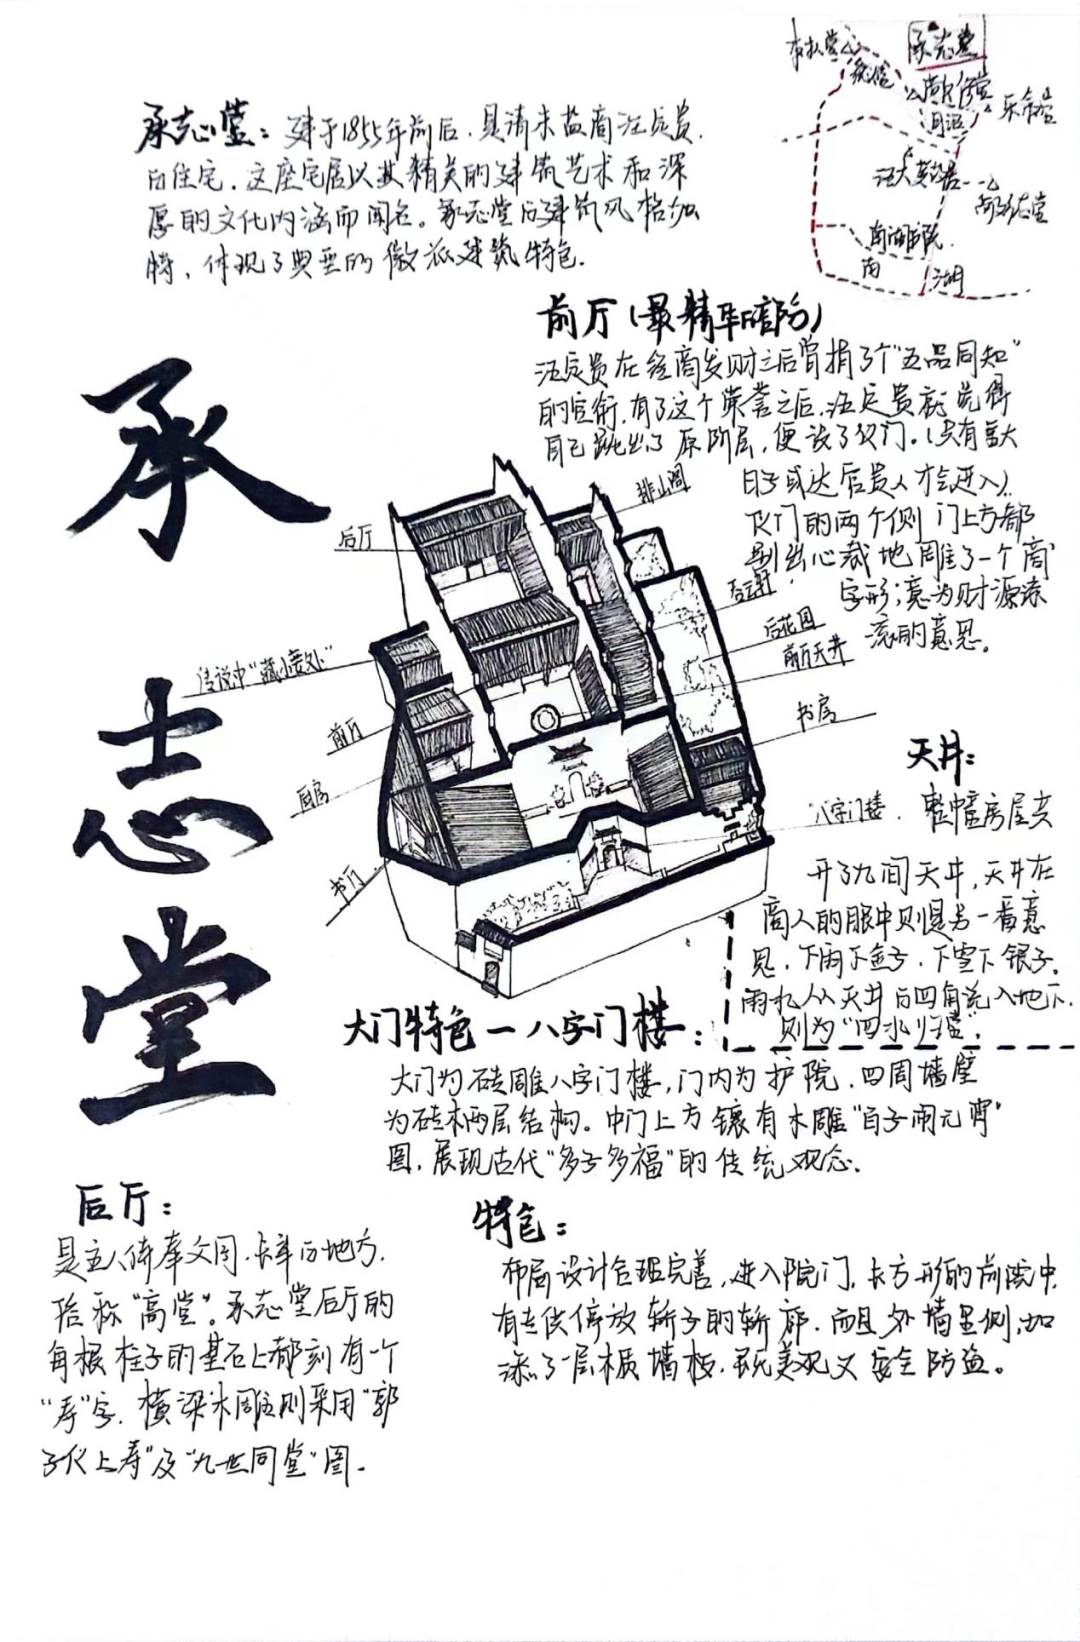 承志堂
承志堂：建于1855年前后，是清末盐商汪定贵
的住宅。这座宅居以其精美的建筑艺术和深
厚的文化内涵而闻名。承志堂的建筑风格独
特，体现了典型的徽派建筑特色。
承志堂
乐叙堂
汪大燮故居
南湖书院
南
湖
前厅（最精华的部分）
汪定贵在经商发财之后曾捐了个“五品同知”
的官衔，有了这个荣誉之后，汪定贵就觉得
自己跳出了原阶层，便设了仪门。（只有喜大
日子或达官贵人才会进入）
仪门的两个侧门上方都
别出心裁地雕了一个商
字形；意为财源滚
滚的意思。
后厅
排山阁
后花园
前厅天井
书房
八字门楼
前厅
厨房
书厅
天井：
整幢房屋共
开了九间天井，天井在
商人的眼中则是另一番意
见，下雨下金子，下雪下银子。
雨水从天井的四角流入地下，
则为“四水归堂”。
大门特色一八字门楼：
大门为砖雕八字门楼，门内为护院，四周墙壁
为砖木两层结构。中门上方镶有木雕“百子闹元宵”
图，展现古代“多子多福”的传统观念。
后厅：
是主人侍奉父母、长辈的地方，
俗称“高堂”。承志堂后厅的
每根柱子的基石上都刻有一个
“寿”字，横梁木雕则采用“郭
子仪上寿”及“九世同堂”图。
特色：
布局设计合理完善，进入院门，长方形的前院中，
有专供停放轿子的轿廊，而且外墙里侧，加
添了一层木质墙板，既美观又安全防盗。